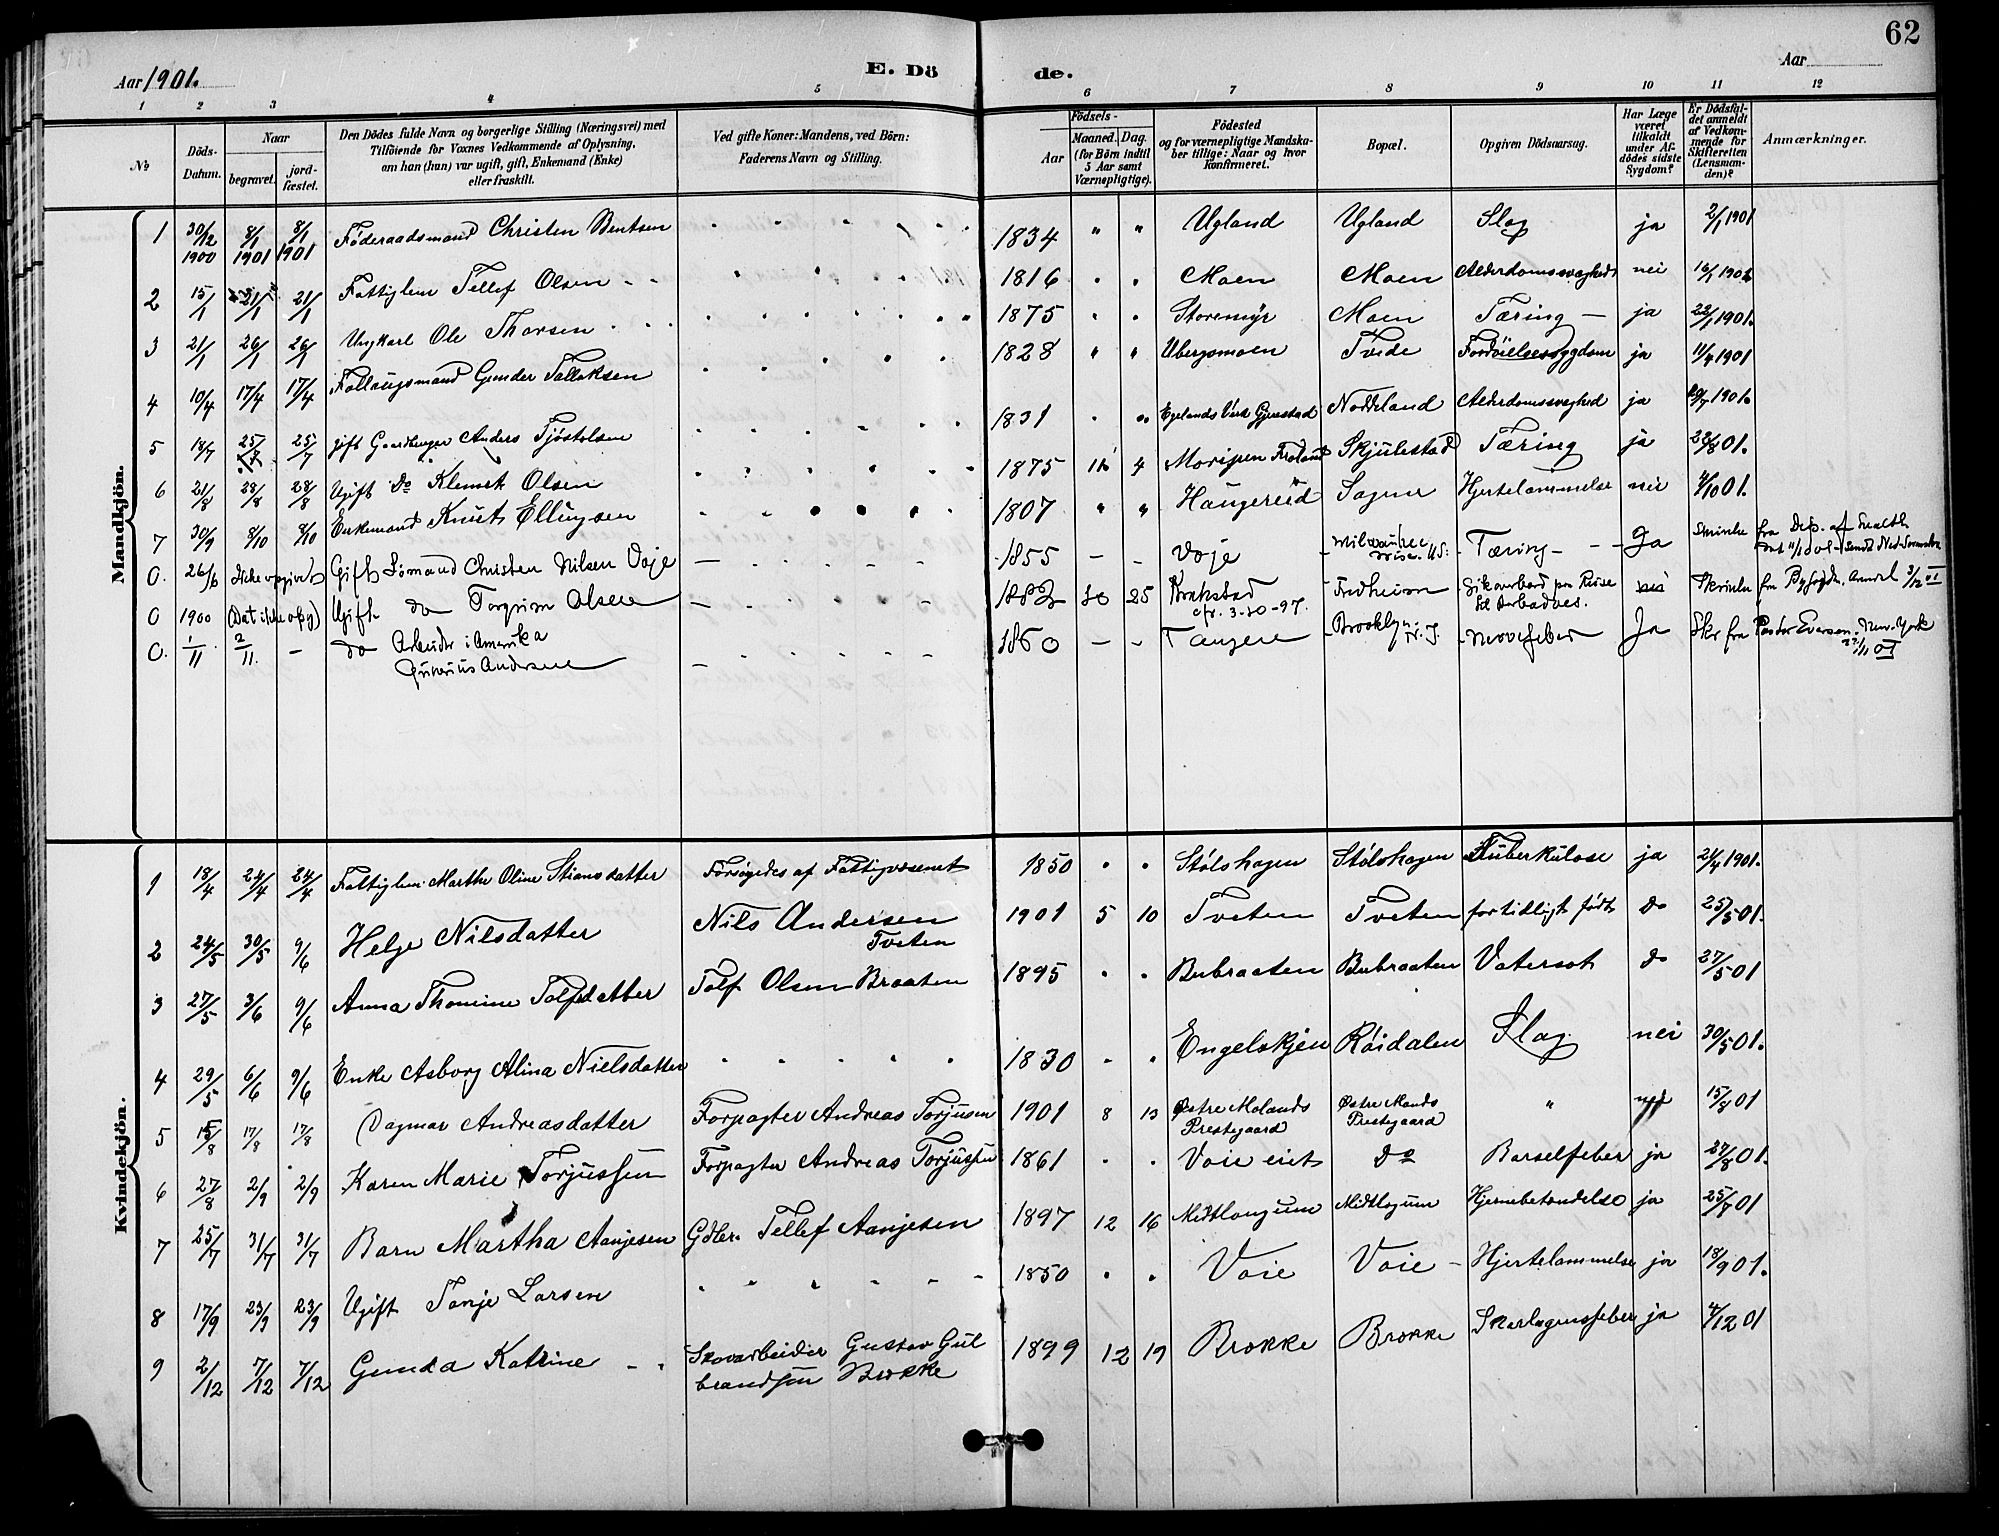 62
Aar 1901.
E. Dö
de.
Aar
1 2 3 4 5 6 7 8 9 10 11 12
№
Döds-Datum.
Naar
begravet.
jord-fæstet.
Den Dödes fulde Navn og borgerlige Stilling (Næringsvei) med
Tilföiende for Voxnes Vedkommende af Oplysning,
om han (hun) var ugift, gift, Enkemand (Enke)
eller fraskilt.
Ved gifte Koner: Mandens, ved Börn:
Faderens Navn og Stilling.
Födsels-
Aar
Maaned. Dag.
(for Börn indtil
5 Aar samt
Værnepligtige).
Födested
og for værnepligtige Mandska-
ber tillige: Naar og hvor
konfirmeret.
Bopæl.
Opgiven Dödsaarsag.
Har Læge
været
tilkaldt
under Af-
dödes sidste
Sygdom?
Er Dödsfal-
det anmeldt
af Vedkom-
mende for
Skifteretten
(Lensman-
den)?
Anmærkninger.
Mandkjön.
1 30/12 1900 8/1 1901 8/1 1901 Föderaadsmand Christen Bentsen 1834 " " Ugland Ugland Slag ja 2/1 1901
2 15/1 21/1 21/1 Fattiglem Tellef Olsen 1816 Moen Moen Alderdomssvaghed nei 16/1 1901
3 21/1 26/1 26/1 Ungkarl Ole Thorsen 1875 Storemyr Moen Tæring ja 22/1 1901.
4 10/4 17/4 17/4 Follaugsmand Gunder Tallaksen 1828 " " Ubergsmoen Tvede Fordöielsessygdom ja 11/4 1901
5 18/7 25/7 25/7 gift Gaardbruger Anders Tjöstolsen 1831 Egelands Værk Gjerestad Noddeland Alderdomssvaghed ja 1901.
6 21/8 28/8 28/8 Ugift Do Klemet Olsen 1875 4 Moripen Froland Skjulestad Tæring ja 01.
7 30/9 8/10 8/10 Enkemand Knut Ellingsen 1807 " " Haugereid Sagene Hjertelammelse nei 4/10 01.
0. 26/6 Ikke opgivet Gift Sömand Christen Nilsen Voje 1855 - - Voje Milwaukee Wisc. U.S. Tæring Ja Skrivelse fra Dep. af Health
0 1900 (Dat ikke opg) Ugift do Torgrim Olsen 1883 10 25 Brakstad cfr. 3-10-97. Fredheim Gik overbord paa Reise til Barbados. Skrivelse fra 3/12 01
0. 1/11 2/11. - do Arbeider i Amerika 1860 - - Tangen Brooklyn N.Y. Nervefeber Ja Skr fra Pastor Everson. New-York
Gunerius Andersen 22/11 01
Kvindekjön.
1 18/4 24/4 24/4 Fattiglem Marthe Oline Stiansdatter Forsörgedes af Fattigvæsenet 1850 Stölshagen Stölshagen Tuberkulose ja 21/4 1901.
2 24/5 30/5 9/6 Helge Nilsdatter Nils Andersen Tveten 1901 5 10 Tveten Tveten for tidligt födt do 25/5 01.
3 27/5 3/6 9/6 Anna Thomine Tolfsdatter Tolf Olsen Braaten 1895 Bubraaten Bubraaten Vatersot do 27/5 01
4 29/5 6/6 9/6 Enke Asborg Alina Nielsdatter 1830 Engelskjen Röisdalen Slag nei 30/5 01.
5 15/8 17/8 17/8 Dagmar Andreasdatter Forpagter Andreas Torjusen 1901 8 13 Östre Molands Prestegaard Östre Molands Prestegaard " nei 15/8 01
6 27/8 2/9 2/9 Karen Marie Torjussen Forpagter Andreas Torjussen 1861 Voie eiet Do Barselfeber ja 27/8 01.
7 25/7 31/7 31/7 Barn Martha Aanjesen Gdbr. Tellef Aanjesen 1897 12 16 Midtlongum Midtlogum Hjernebetændelse ja 25/7 01
8 17/9 23/9 23/9 Ugift Tonje Larsen 1850 Voie Voie - Hjertelammelse ja 18/9 01.
9 2/12 7/12 7/12 Gunda Katrine Skovarbeider Gustav Gul 1899 12 19 Brokke Brokke Skarlagensfeber ja 4/12 01
brandsen Brokke